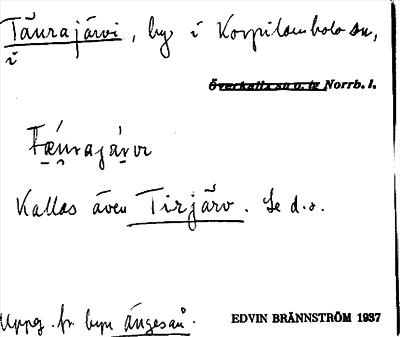 Täurajärvi, by i Korpilombolo sn,
i
Överkalix sn o. tg Norrb. l.
Tǽu̯rajä́rvi
Kallas även Tirjärv. Se d.o.
Uppg. fr byn Ängeså.
EDVIN BRÄNNSTRÖM 1937